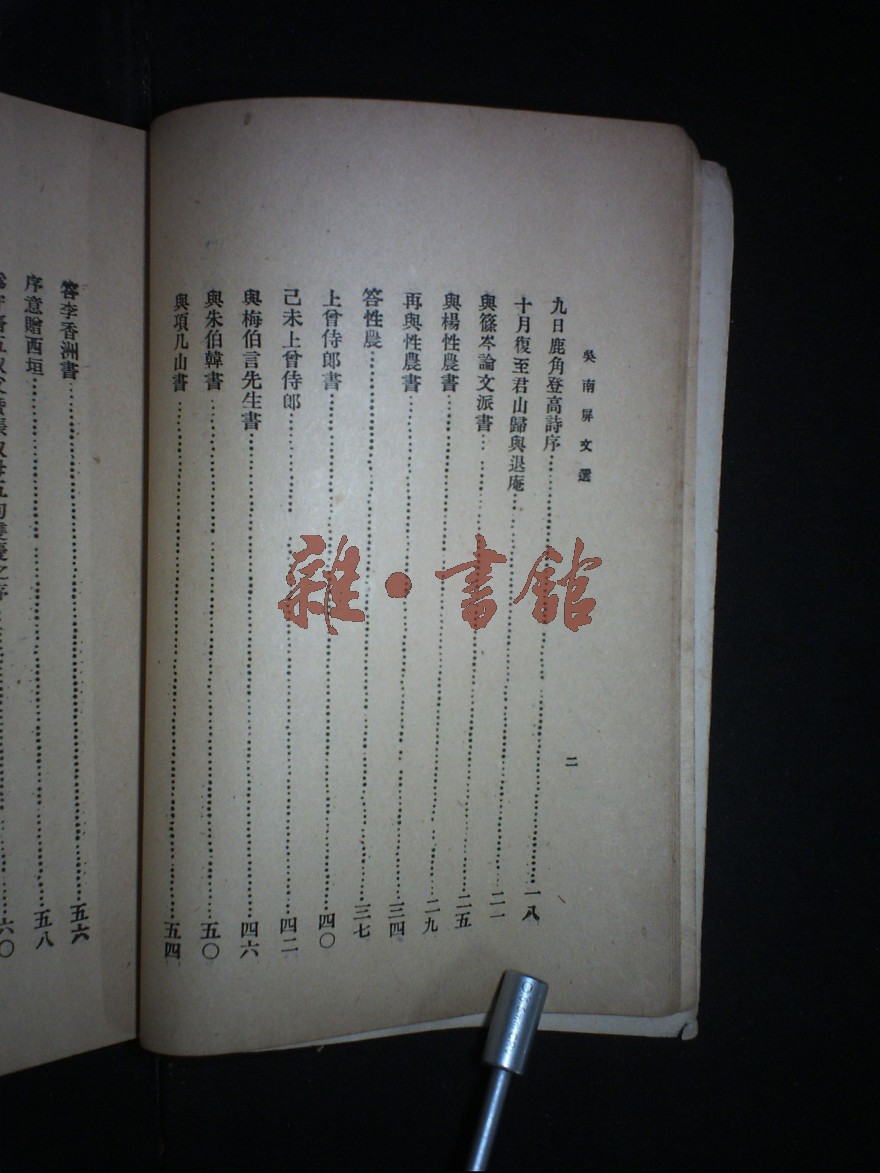 吳南屏文選
九日鹿角登高詩序……一八
十月復至君山歸與退庵……二一
與篠岑論文派書……二五
與楊性農書……二九
再與性農書……三四
答性農……三七
上曾侍郎書……四〇
己未上曾侍郎……四二
與梅伯言先生書……四六
與朱伯韓書……五〇
與項几山書……五四
二
答李香洲書……五六
序意贈西垣……五八
六〇
雜·書館